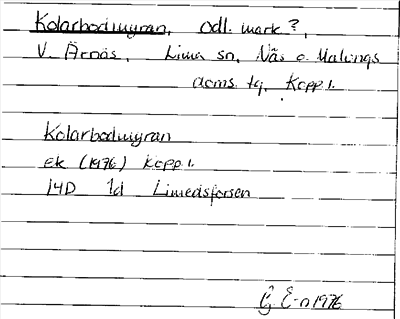 Kolarbodmyran, odl. mark?,
V. Ärnäs, Lima sn, Näs o. Malungs
doms tg, Kopp l.
Kolarbodmyran
Ek (1976) Kopp l.
14D 1d Limedsforsen
G. E-n 1976